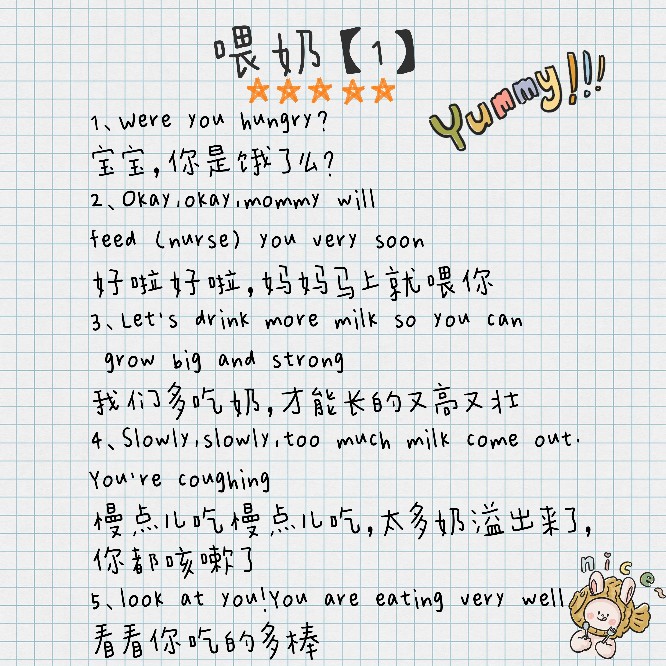 喂奶【1】
Yummy!!!
1、Were you hungry?
宝宝,你是饿了么?
2、Okay,okay,mommy will
feed (nurse) you very soon
好啦好啦,妈妈马上就喂你
3、Let's drink more milk so you can
grow big and strong
我们多吃奶,才能长的又高又壮
4、Slowly,slowly,too much milk come out.
You're coughing
慢点儿吃慢点儿吃,太多奶溢出来了,
你都咳嗽了
5、look at you!You are eating very well
看看你吃的多棒
nice~